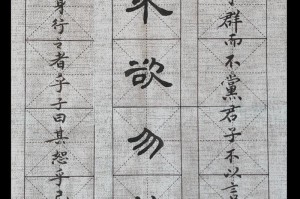 群而不黨君子不以言
不欲勿
身行之者乎子曰其恕乎